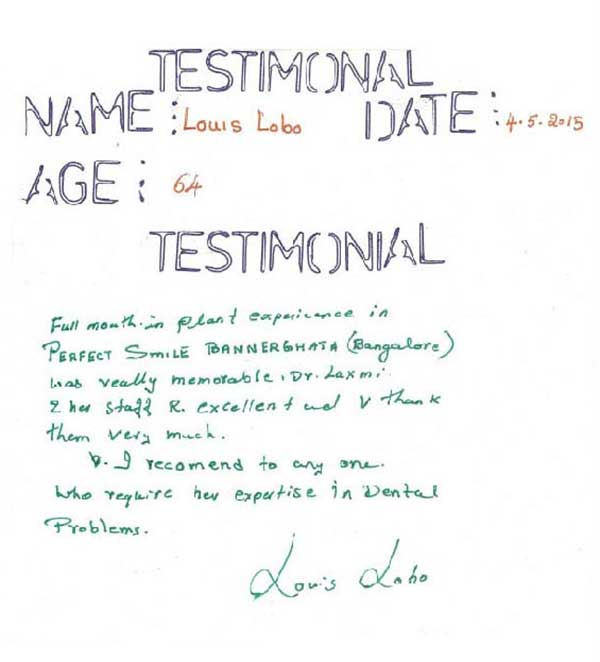 TESTIMONAL
NAME : Louis Lobo DATE : 4.5.2015
AGE : 64
TESTIMONIAL
Full mouth in plant experience in
PERFECT SMILE BANNERGHATA (Bangalore)
was really memorable. Dr. Laxmi.
& her staff R. excellent and V thank
them very much.
I recomend to any one.
who require her expertise in Dental
Problems.
Louis Lobo